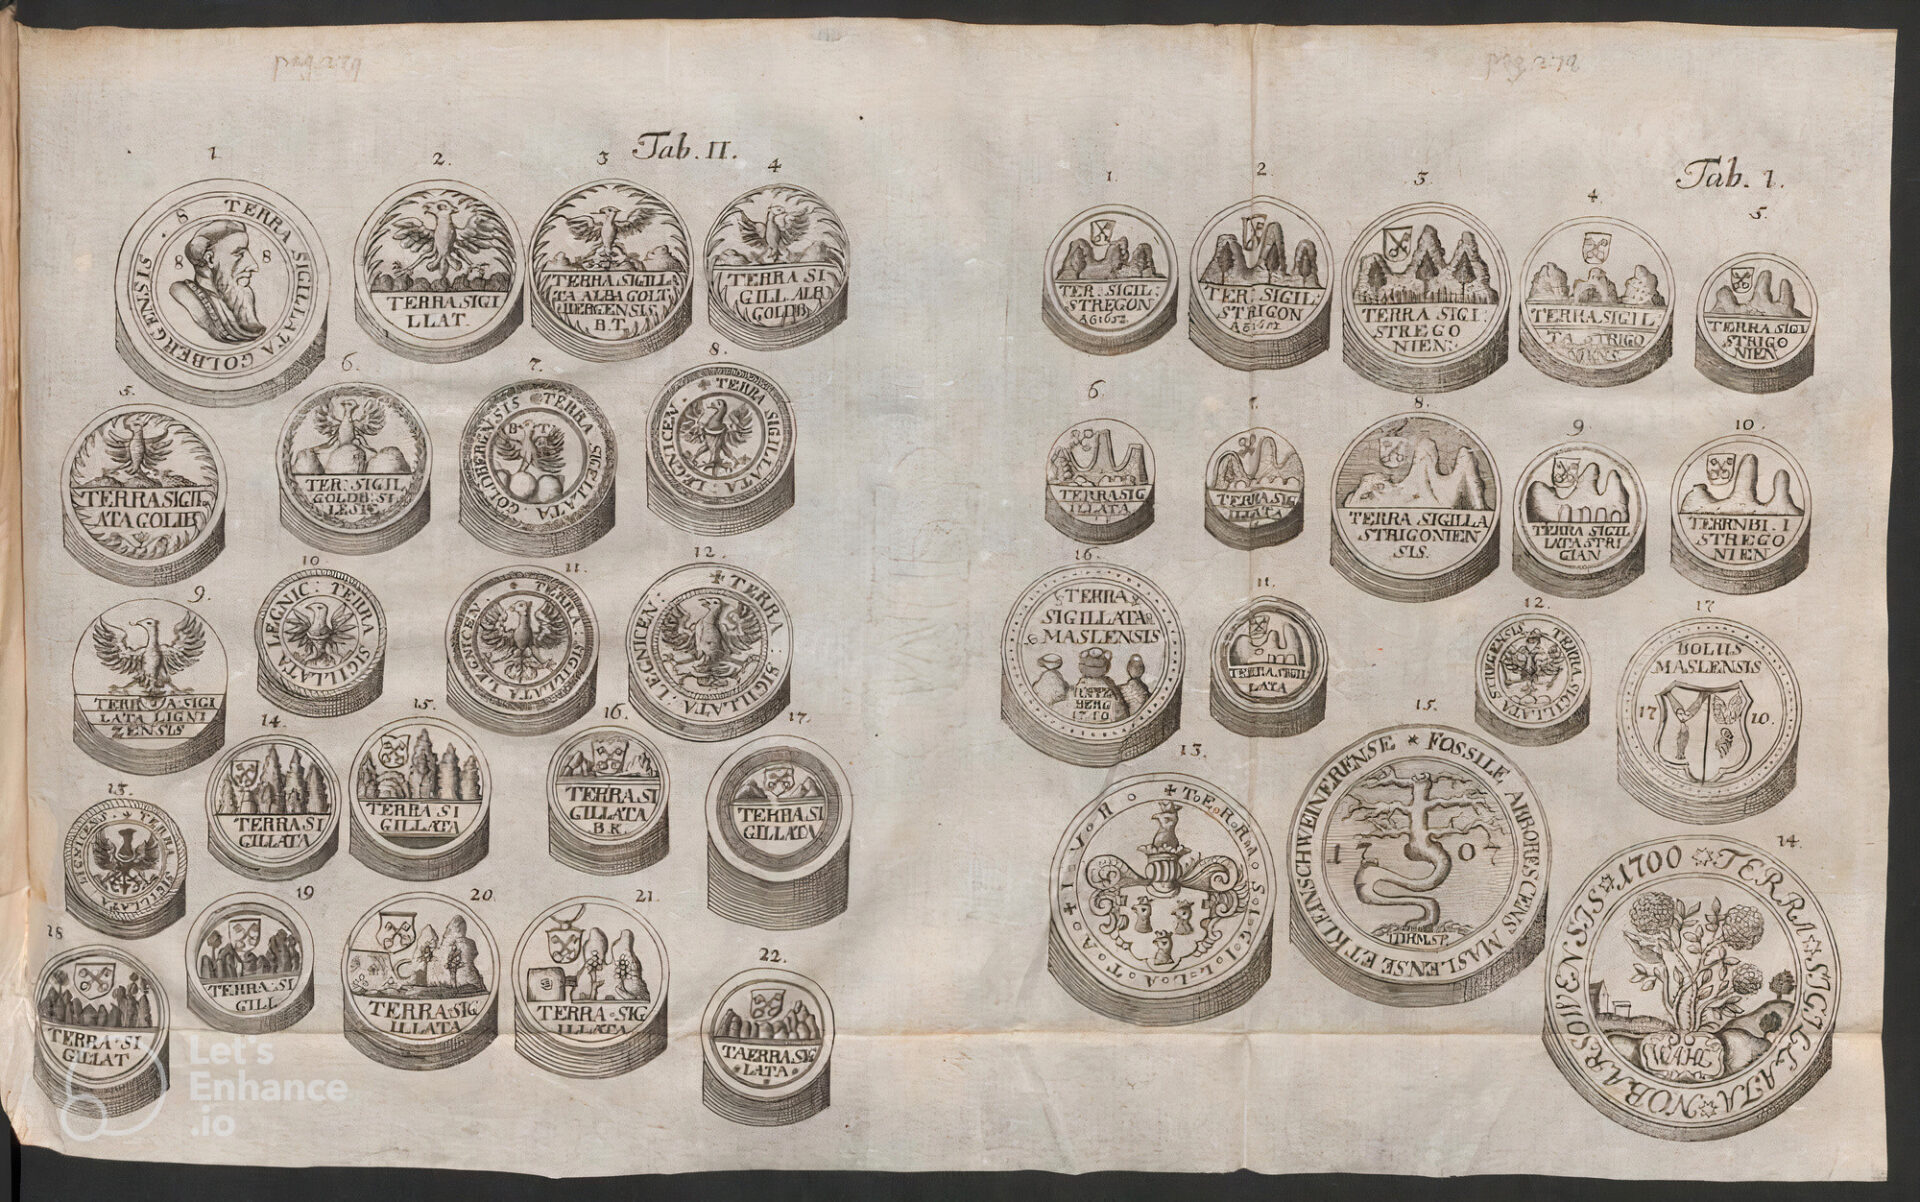 Tab. II.
1
TERRA SIGILLATA GOLBERGENSIS . 8
8 8
2.
TERRA.SIGI
LLAT.
3
TERRA.SIGILL
TA ALBA GOLT
BERGENSIS
B.T.
4
TERRA SI
GILL. ALB
GOLDB
5.
TERRA SIGIL
ATA GOLIB
6.
TER: SIGIL
GOLDB: SI
LESIE.
7.
TERRA . SIGILLATA . GOLDBERGENSIS
B T
8.
+ TERRA SIGILLATA: LEGNICEN .
9.
TERR A.SIGI
LATA LIGNI
ZENSIS
10
TERRA SIGILLATA LEGNIC:
11.
TERRA: SIGILLATA LEGNICEN:
12.
+ TERRA: SIGILLATA: LEGNICEN:
13.
+ TERRA SIGILLATA LIGNICENS.
14.
TERRA SI
GILLATA
15.
TERRA.SI
GILLATA
16.
TERRA.SI
GILLATA
B.R.
17.
TERRA SI
GILLATA
18
TERRA.SI
GILLAT
19
TERRA.SI
GILL
20.
TERRA.SIG
ILLATA
21.
TERRA.SIG
ILLATA
22.
TAERRA.SIG
LATA
Tab. I.
1.
TER: SIGIL:
STREGON
A&1652.
2.
TER: SIGIL:
STRIGON
3.
TERRA SIGI:
STREGO
NIEN:
4
TERRA.SIGIL:
TA STRIGO
NIENS
5.
TERRA SIGI
STRIGO
NIEN
6.
TERRASIG
ILLATA
7.
TERRA.SIG
ILLATA
8.
TERRA SIGILLA
STRIGONIEN
SIS.
9.
TERRA SIGIL
LATA STRI
GIAN
10.
TERRNBI.I
STREGO
NIEN
16.
TERRA
SIGILLATA
MASLENSIS
BERG
1710
11.
TERRA SIGIL
LATA
12.
TERRA SIGILLATA STREGENSIS
17
BOLUS
MASLENSIS
17 10.
13.
+ T.E.R.R.M.S.I.G.I.L.L.A.T.A + I.V.R
15.
FOSSILE ARBORESCENS MASLENSE ET KLEINSCHWEINERENSE *
1707
14.
TERRA SIGILLATA NOBARSOVENSIS 1700
WAHL
Let's
Enhance
.io